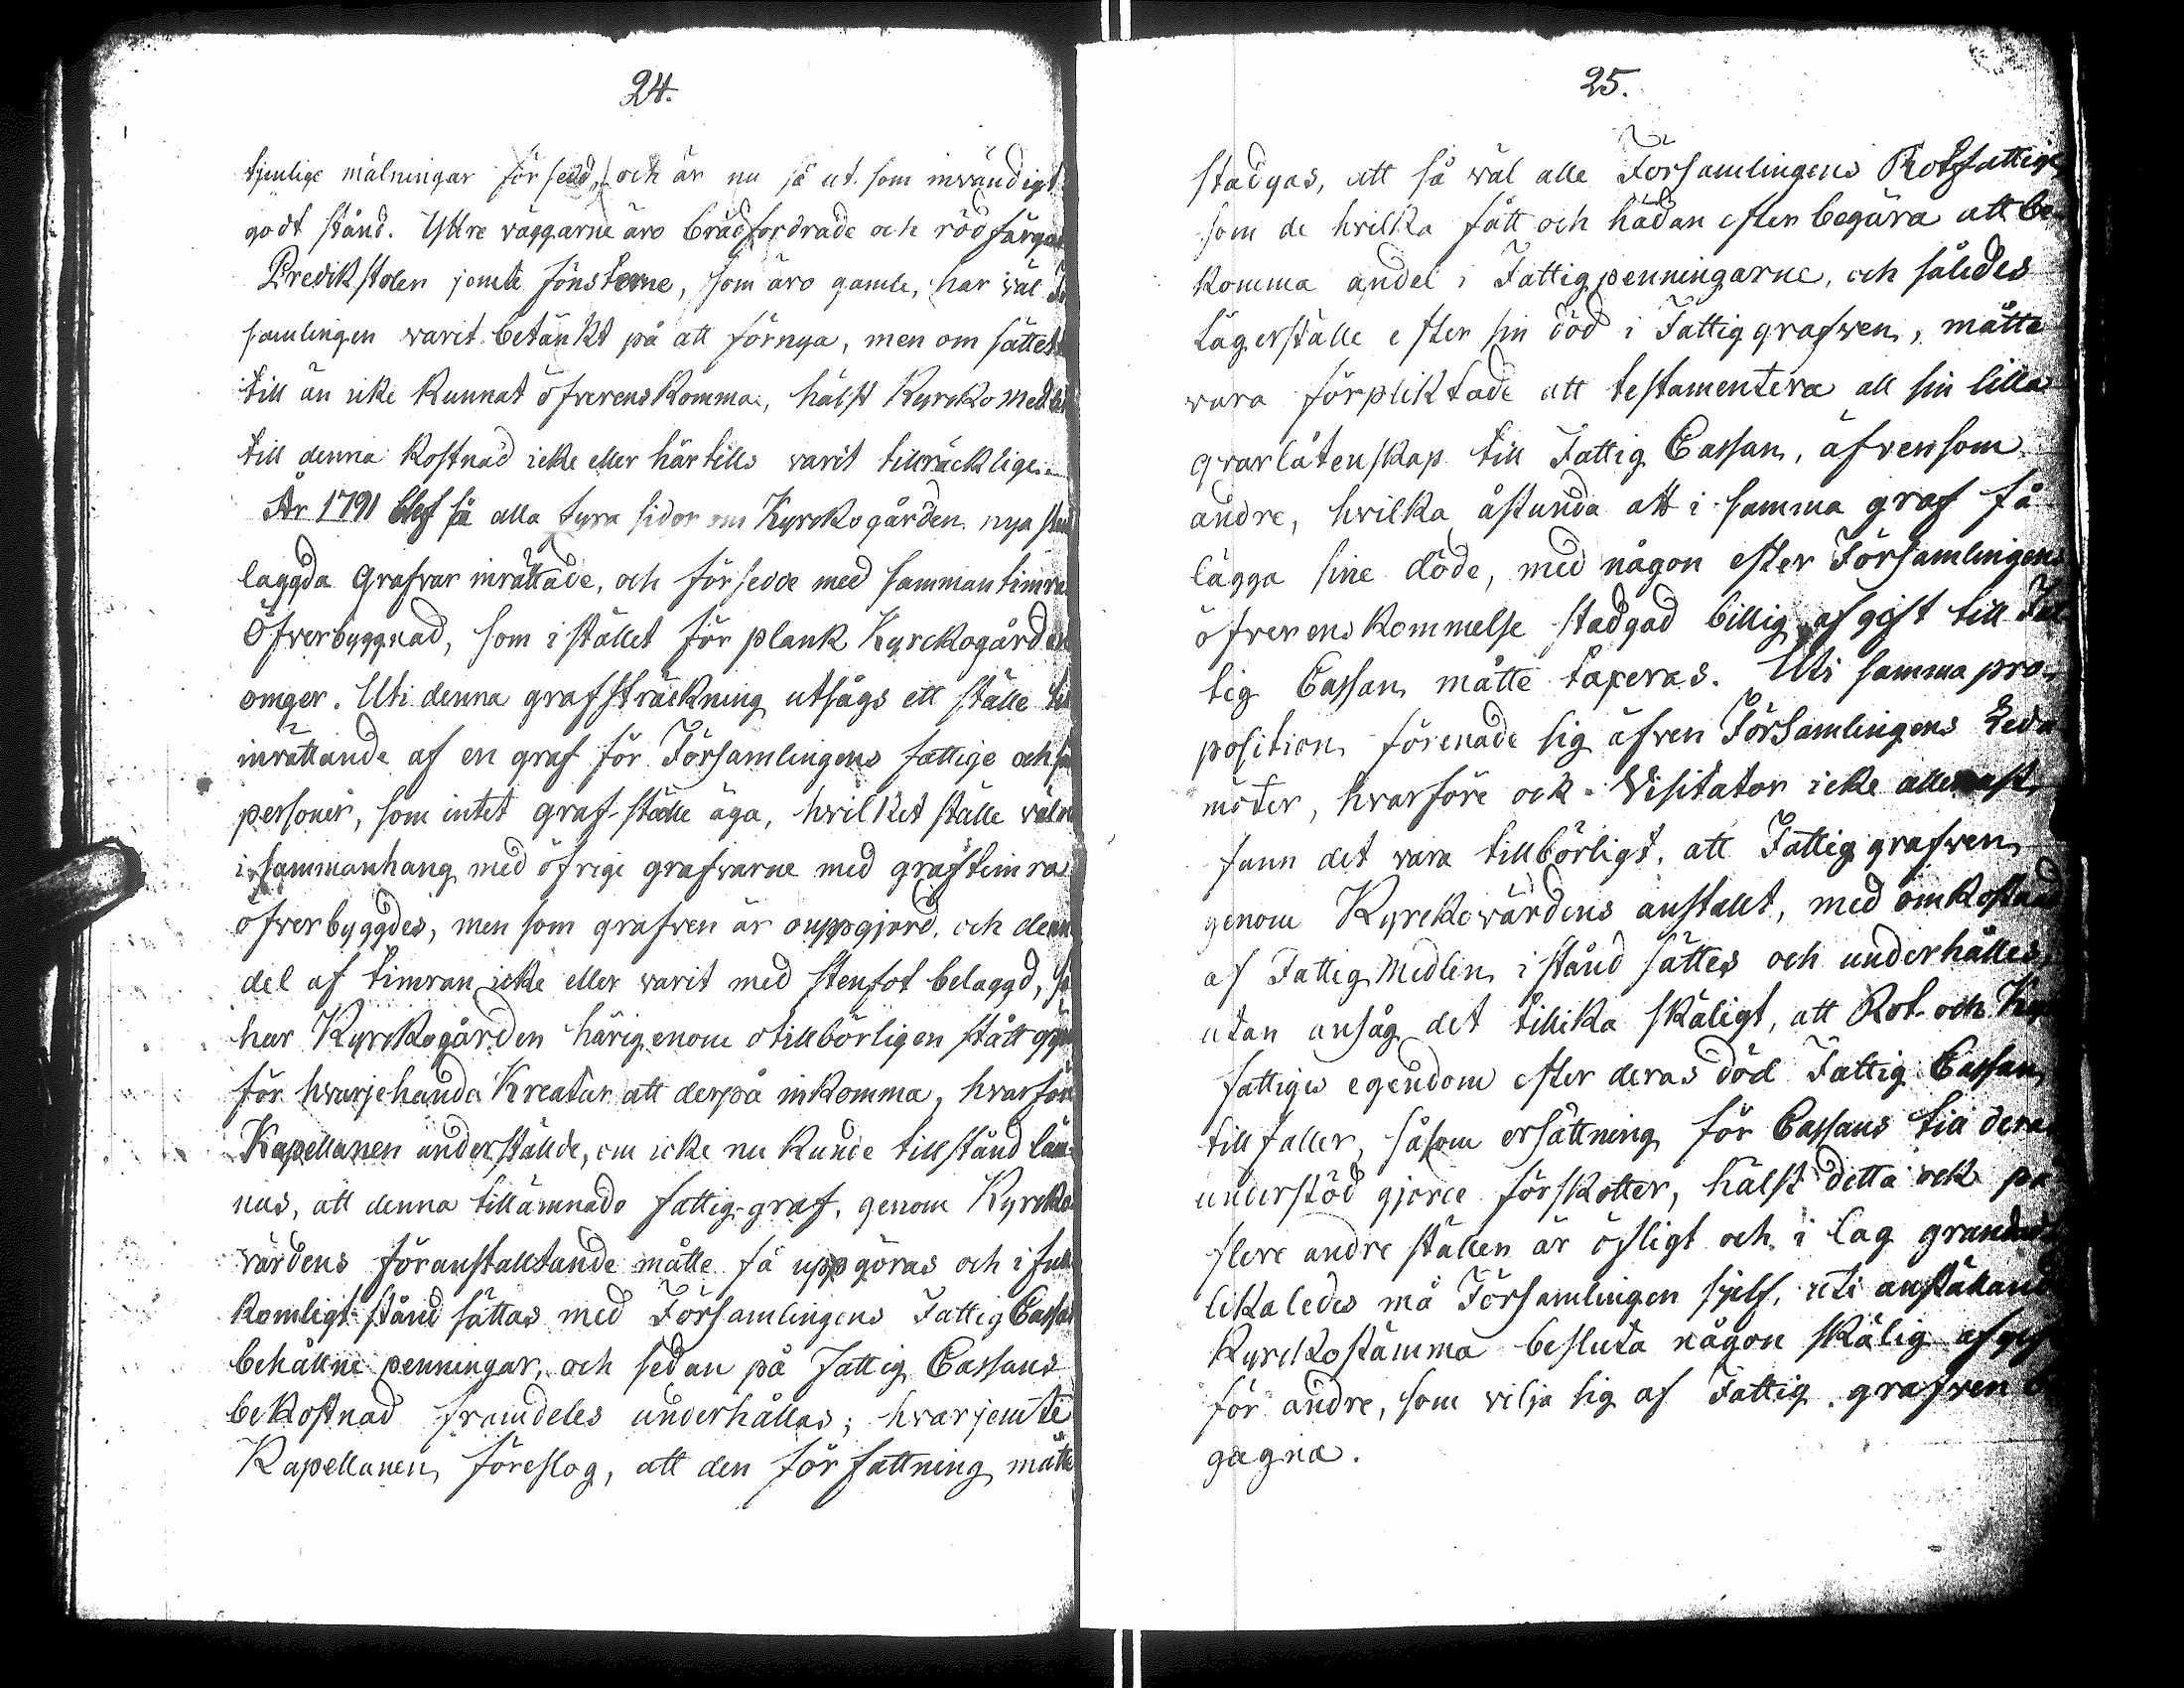 24.
tjenlige målningar försedd, och är nu så ut som invändigt
godt stånd. Yttre väggarne äro brädfordrade och rödfärgad
Predikstolen jemte fönsterne, som äro gamle, har väl
samlingen varit betänkt på att förnya, men om sättet
till än icke kunnat öfverenskomma, hälst Kyrcko medlen
till denna kostnad icke eller här tills varit tillräcklige.
År 1791 blef på alla fyra sidor om Kyrckogården nya sten
laggda Grafvar inrättade, och försedde med samman timra
Öfverbyggnad, som i stället för plank Kyrckogården
omger. Uti denna grafsträckning utsågs ett ställe til
inrättande af en graf för Församlingens fattige och
personer, som intet graf-ställe äga, hvilket ställe väl
i sammanhang med öfrige grafvarne med graftimra
öfverbyggdes, men som grafven är ouppgjord, och denna
del af timran icke eller varit med stenfot belaggd, så
har Kyrckogården härigenom otillbörligen stått
för hvarjehanda Kreatur att derpå inkomma, hvarföre
Kapellanen underställde, om icke nu kunde tillstånd läm-
nas, att denna tillämnade fattig-graf, genom Kyrcko-
värdens föranstalltande måtte få uppgöras och i full
komligt stånd sättas med Församlingens Fattig Cassas
behållne penningar, och sedan på Fattig Cassans
bekostnad framdeles underhållas; hvarjemte
Kapellanen föreslog, att den författning måtte
25.
stadgas, att så väl alle Församlingens Rotfattige,
som de hvilka fått och hädan efter begära att be-
komma andel i Fattigpenningarne, och således
Lägerställe efter sin död i Fattiggrafven, måtte
vara förpliktade att testamentera all sin lilla
qvarlåtenskap till Fattig Cassan, äfvensom
andre, hvilka åstunda att i samma graf få
lägga sine döde, med någon efter Församlingens
öfverenskommelse stadgad billig afgift till Fat
tig Cassan måtte taxeras. Uti samma pro-
position förenade sig äfven Församlingens Leda
möter, hvarföre ock Visitator icke allenast
fann det vara tillbörligt, att Fattiggrafven
genom Kyrckovärdens anstallt, med omkostnad
af Fattig Medlen i stånd sättes och underhålles,
utan ansåg det tillika skäligt, att Rot- och
fattiges egendom efter deras död Fattig Cassan
tillfaller, såsom ersättning för Cassans till deras
understöd gjorde förskotter, hälst detta ock på
flere andre ställen är öfligt och i lag grundadt
likaledes må Församlingen sjelf, uti anställande
Kyrckostämma besluta någon skälig afgift
för andre, som vilja sig af Fattig grafven be
gagna.